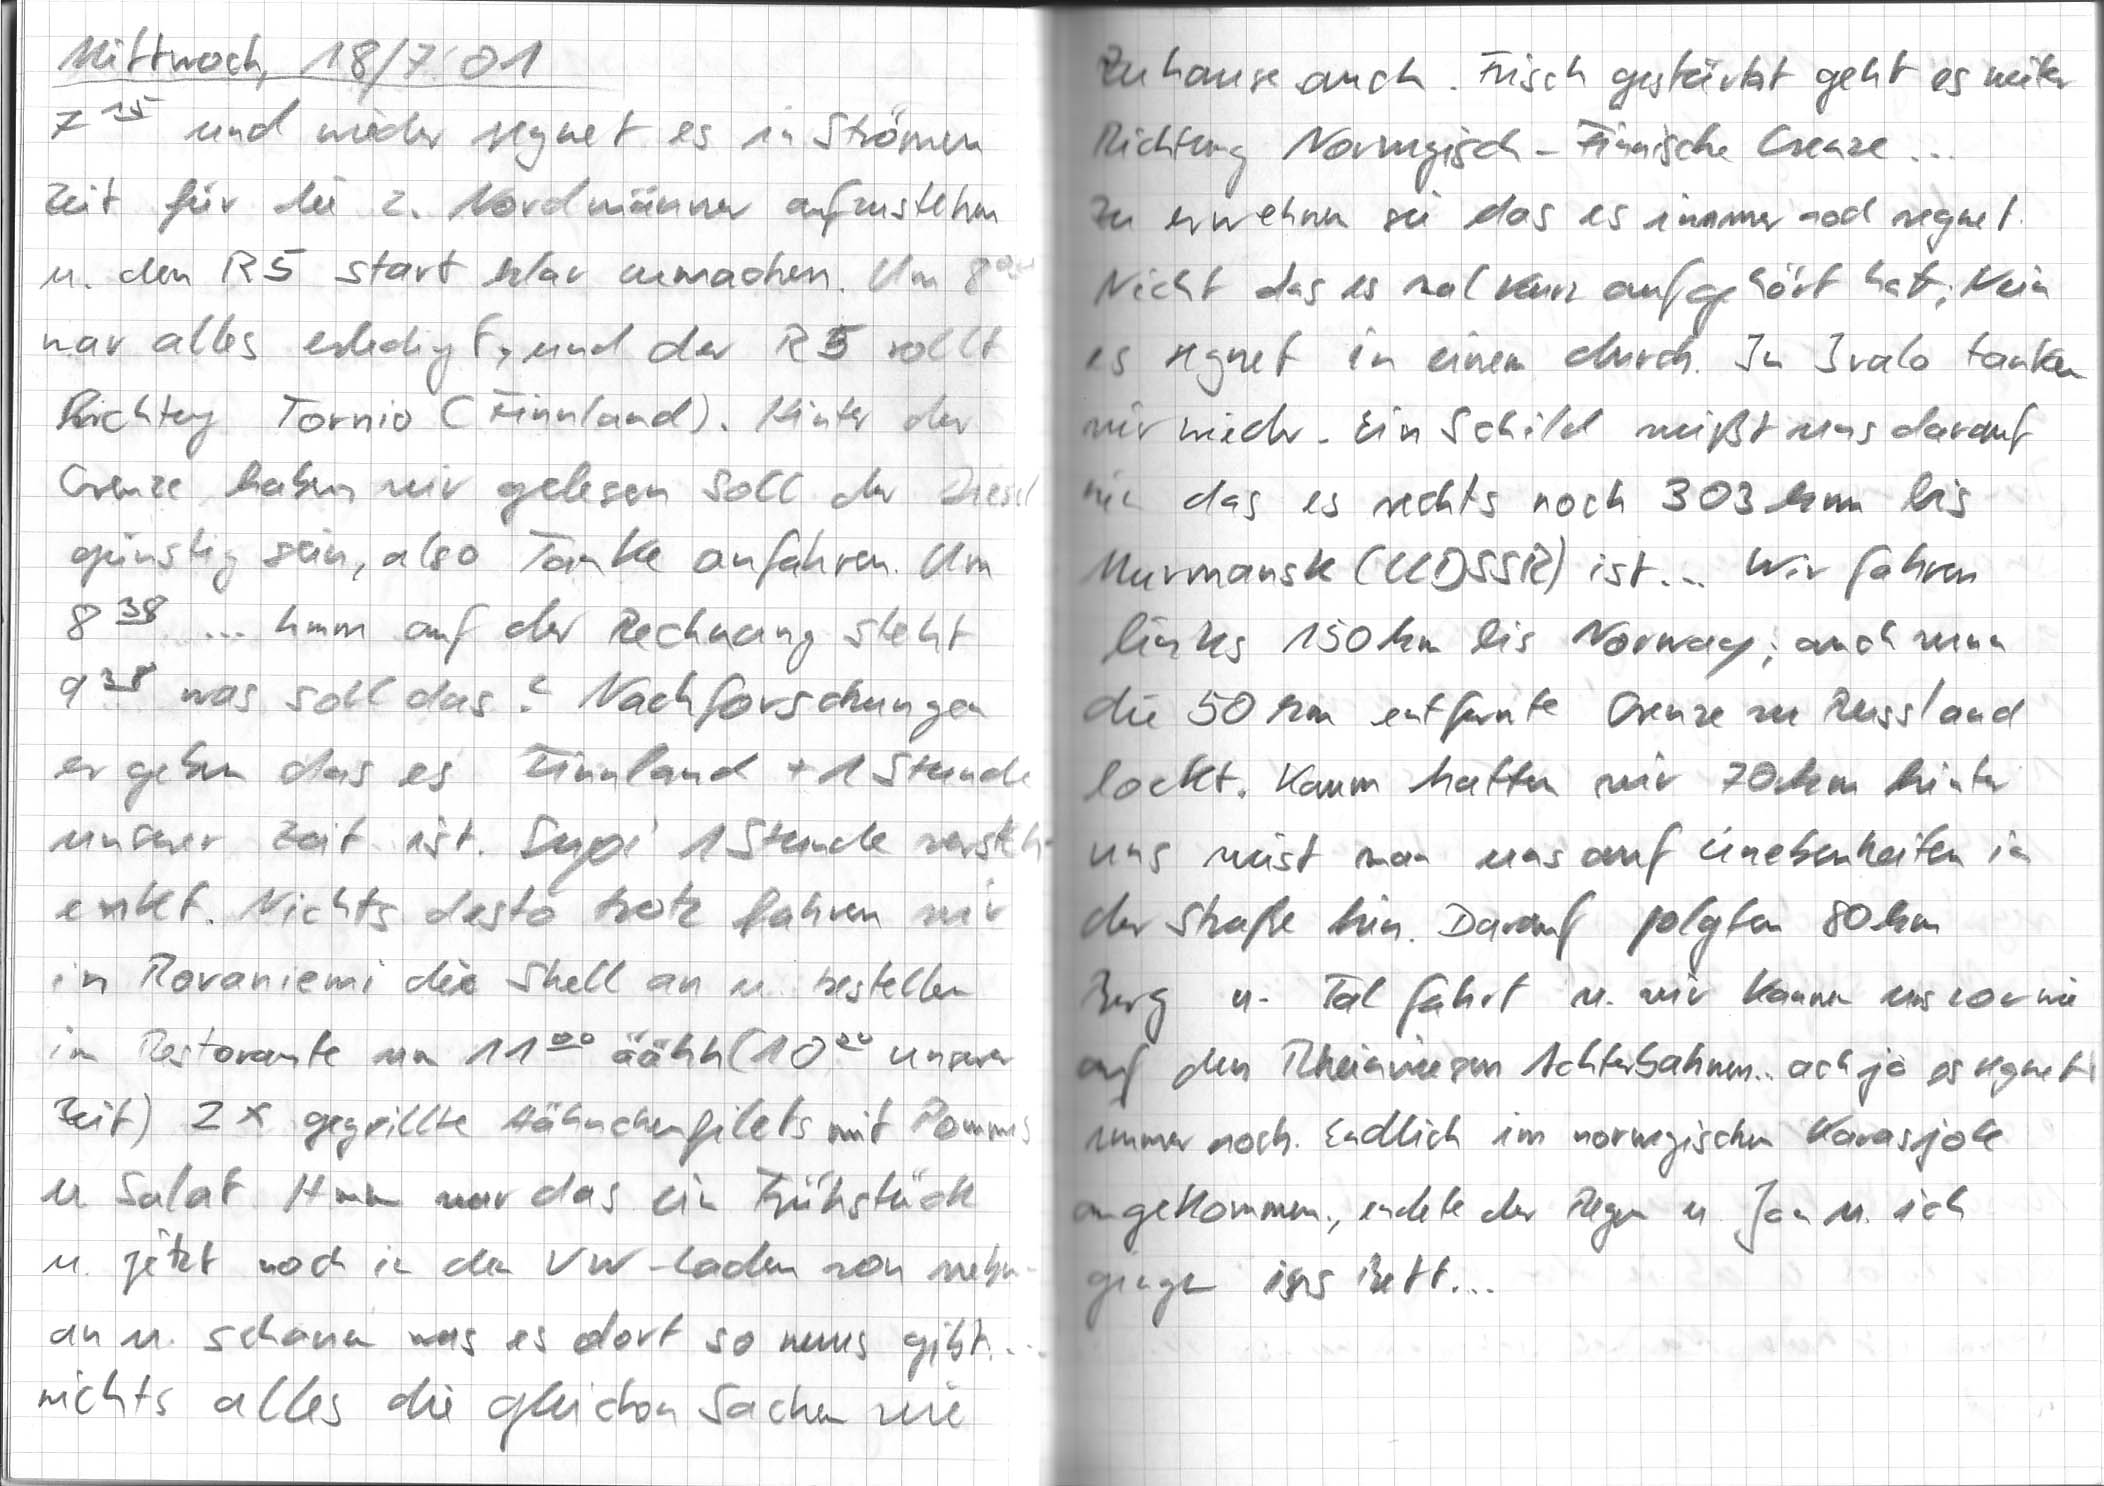 Mittwoch, 18/7/01
7 15 und wieder regnet es in Strömen
Zeit für die 2. Nordmänner aufzustehen
u. den R5 start klar zumachen. Um 8
war alles erledigt, und der R5 rollt
Richtung Tornio (Finnland). Hinter der
Grenze haben wir gelesen soll der Diesel
günstig sein, also Tanke anfahren. Um
8 38 ... hmm auf der Rechnung steht
9 38 was soll das? Nachforschungen
ergeben das es Finnland +1 Stunde
unserer Zeit ist. Supi 1 Stunde versch-
enkt. Nichts desto trotz fahren wir
in Rovaniemi die Shell an u. bestellen
im Restorante um 11 00 äähh (10 00 unserer
Zeit) 2x gegrillte Hähnchenfilets mit Pommes
u. Salat. Hmm war das ein Frühstück
u. jetzt noch in den VW-Laden von neben-
an u. schauen was es dort so neues gibt...
nichts alles die gleichen Sachen wie
Zuhause auch. Frisch gestärkt geht es weiter
Richtung Norwegisch-Finnische Grenze...
Zu erwehnen sei das es immer noch regnet.
Nicht das es mal kurz aufgehört hat; Nein
es regnet in einem durch. In Ivalo tanken
wir wieder. Ein Schild weißt uns darauf
hin das es rechts noch 303 km bis
Murmansk (UDSSR) ist... Wir fahren
links 150 km bis Norway; auch wenn
die 50 km entfernte Grenze zu Russland
lockt. Kaum hatten wir 70 km hinter
uns weist man uns auf Unebenheiten in
der Straße hin. Darauf folgten 80 km
Berg u. Tal fahrt u. wir kamen uns vor wie
auf den Rheinwiesen Achterbahnen... ach ja es regnet
immer noch. Endlich im norwegischen Karasjok
angekommen, endete der Regen u. Jan u. ich
gingen ins Bett...